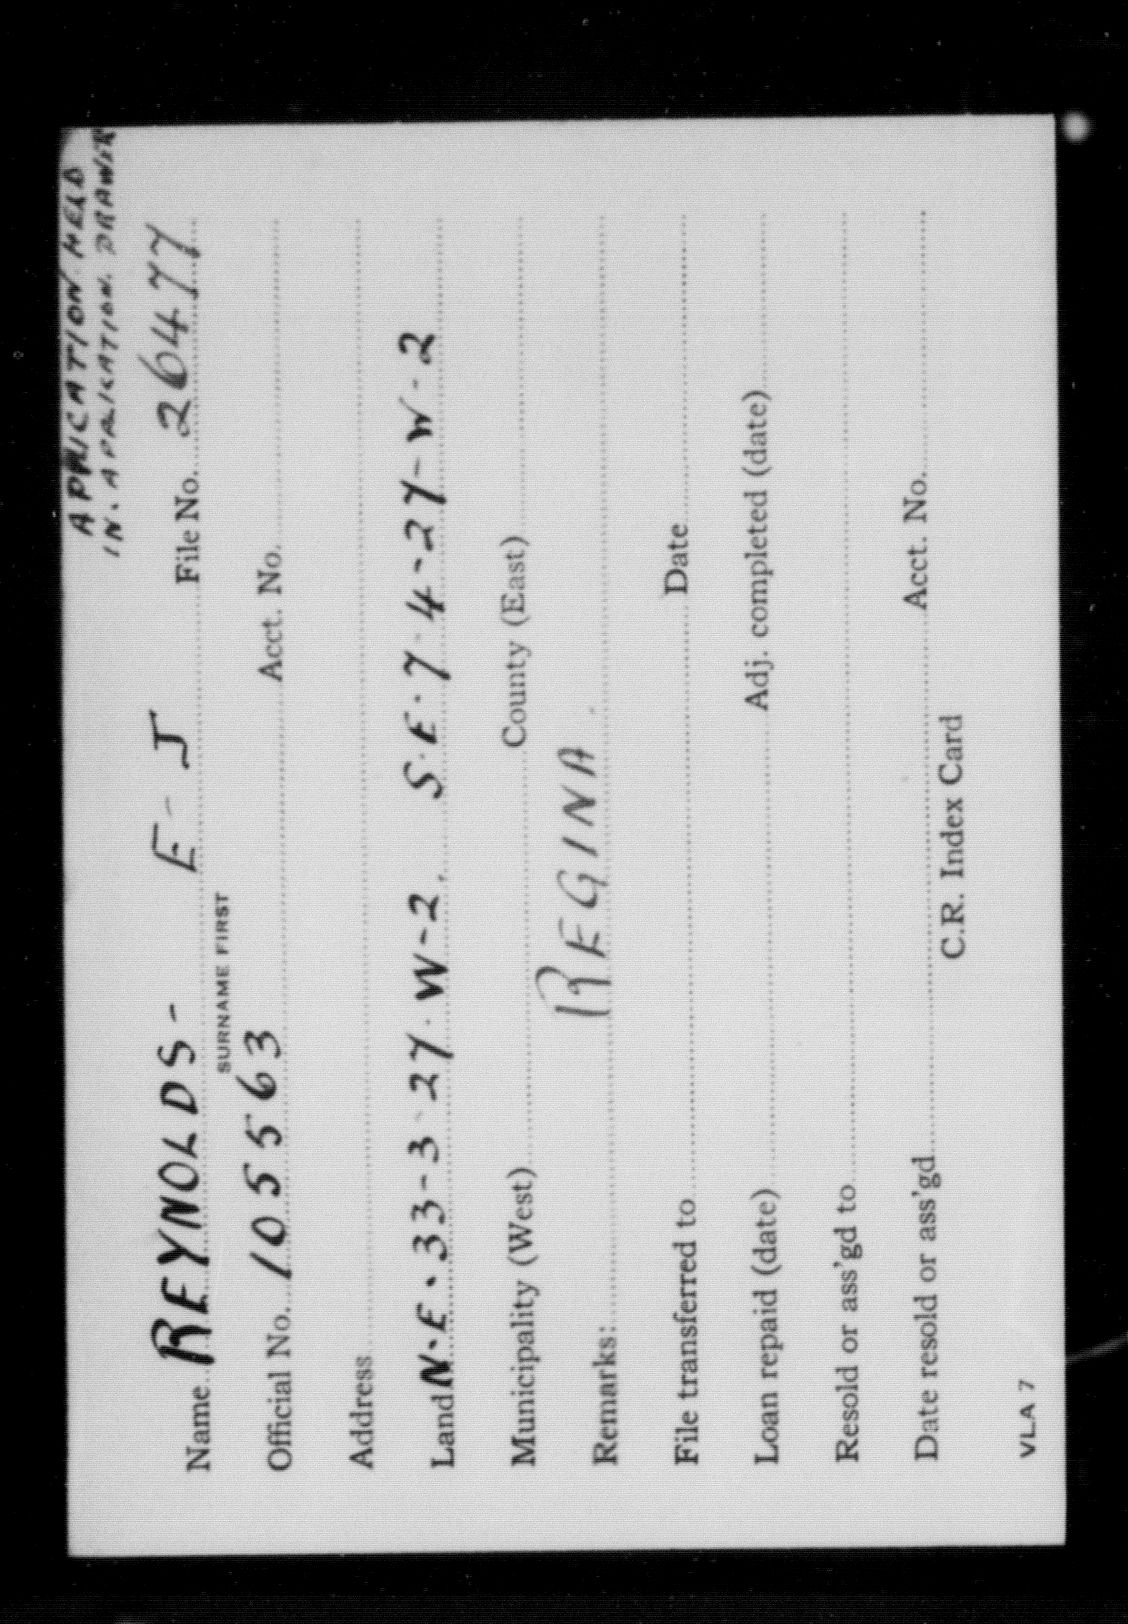 APPLICATION HELD
IN. APPLICATION. DRAWER
Name REYNOLDS - E - J File No. 26477
SURNAME FIRST
Official No. 105563 Acct. No.
Address
Land N.E. 33-3-27. W-2. S.E. 7-4-27-W-2
Municipality (West) County (East)
Remarks: REGINA.
File transferred to Date
Loan repaid (date) Adj. completed (date)
Resold or ass'gd to
Date resold or ass'gd Acct. No.
C.R. Index Card
VLA 7